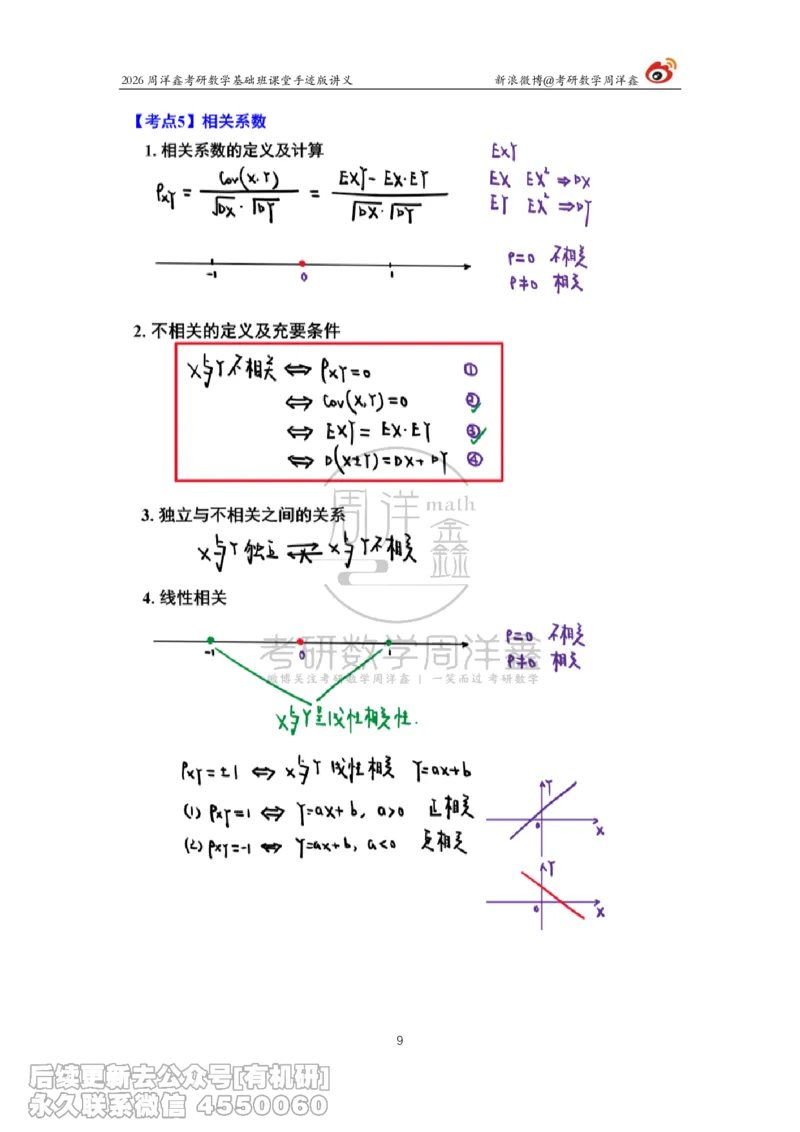 2026 周洋鑫考研数学基础班课堂手迹版讲义 新浪微博@考研数学周洋鑫
【考点5】相关系数
1. 相关系数的定义及计算
ρXY = Cov(X,Y) / √DX·√DY = EXY - EX·EY / √DX·√DY
EXY
EX EX² ⇒ DX
EY EX² ⇒ DY
-1 0 1
ρ=0 不相关
ρ≠0 相关
2. 不相关的定义及充要条件
X与Y不相关 ⇔ ρXY=0 ①
⇔ Cov(X,Y)=0 ②
⇔ EXY = EX·EY ③
⇔ D(X±Y)=DX+DY ④
3. 独立与不相关之间的关系
X与Y独立 ⇄ X与Y不相关
4. 线性相关
-1 0 1
ρ=0 不相关
ρ≠0 相关
X与Y呈线性相关性.
ρXY=±1 ⇔ X与Y线性相关 Y=aX+b
(1) ρXY=1 ⇔ Y=aX+b, a>0 正相关
(2) ρXY=-1 ⇔ Y=aX+b, a<0 负相关
Y
0 X
Y
0 X
周洋鑫 math
考研数学周洋鑫
微博关注考研数学周洋鑫 | 一笑而过 考研数学
9
后续更新去公众号[有机研]
永久联系微信 4550060